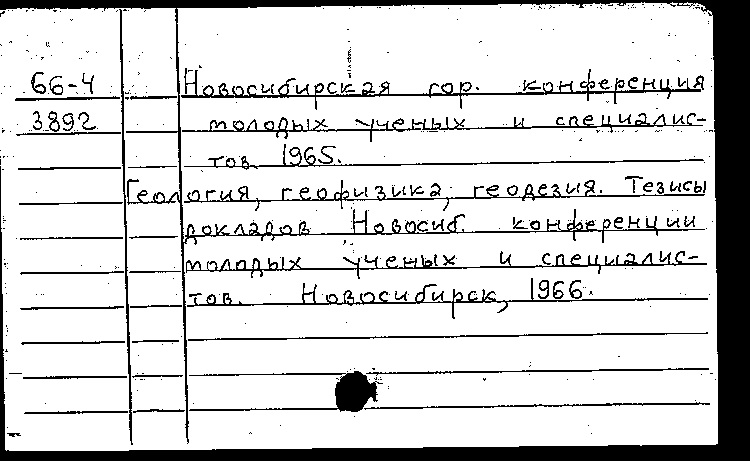 66-4 Новосибирская гор. конференция
3892 молодых ученых и специалис-
тов 1965.
Геология, геофизика, геодезия. Тезисы
докладов Новосиб. конференции
молодых ученых и специалис-
тов. Новосибирск, 1966.